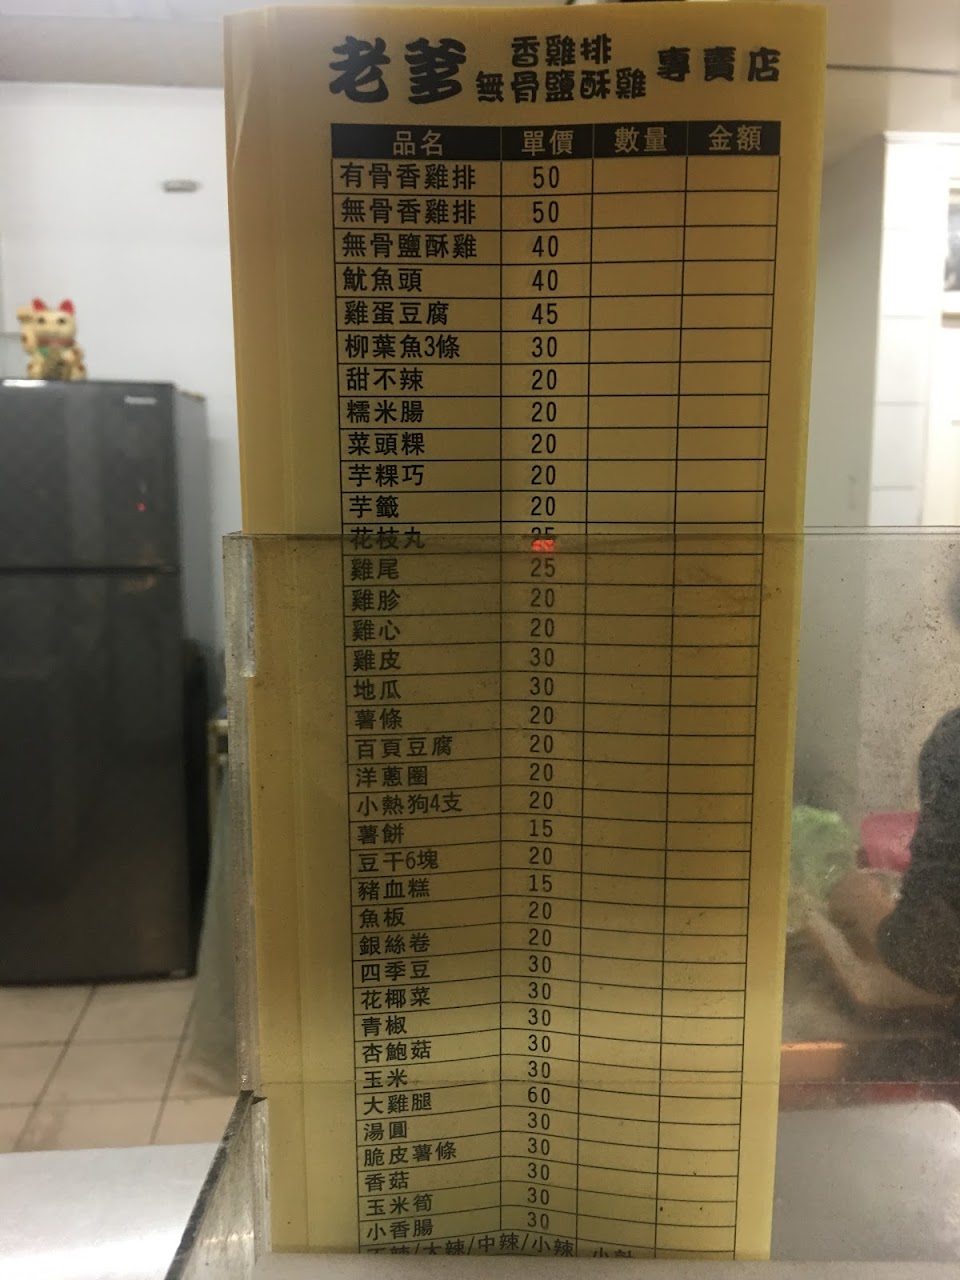 老爹 香雞排 專賣店
無骨鹽酥雞
品名 單價 數量 金額
有骨香雞排 50
無骨香雞排 50
無骨鹽酥雞 40
魷魚頭 40
雞蛋豆腐 45
柳葉魚3條 30
甜不辣 20
糯米腸 20
菜頭粿 20
芋粿巧 20
芋籤 20
花枝丸 25
雞尾 25
雞胗 20
雞心 20
雞皮 30
地瓜 30
薯條 20
百頁豆腐 20
洋蔥圈 20
小熱狗4支 20
薯餅 15
豆干6塊 20
豬血糕 15
魚板 20
銀絲卷 20
四季豆 30
花椰菜 30
青椒 30
杏鮑菇 30
玉米 30
大雞腿 60
湯圓 30
脆皮薯條 30
香菇 30
玉米筍 30
小香腸 30
不辣/大辣/中辣/小辣 小計
Panasonic